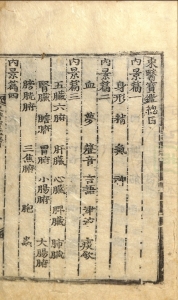 東醫寶鑑總目
內景篇一
身形 精 氣 神
內景篇二
血 夢 聲音 言語 津液 痰飮
內景篇三
五臟六腑 肝臟 心臟 脾臟 肺臟
腎臟 膽腑 胃腑 小腸腑 大腸腑
膀胱腑 三焦腑 胞 蟲
內景篇四